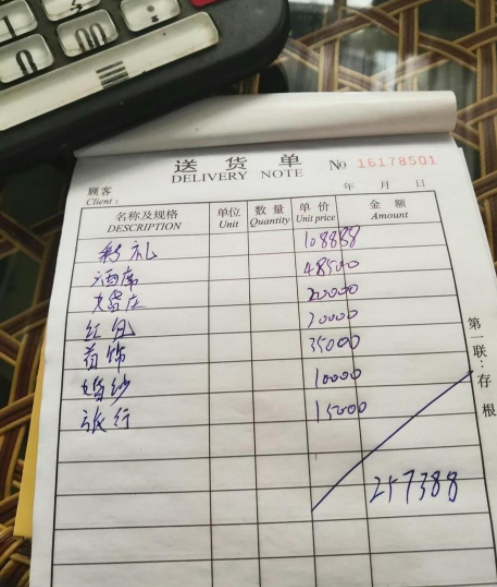 送 货 单
DELIVERY NOTE
№ 16178501
顾客
Client :
年 月 日
名称及规格 单位 数 量 单 价 金 额
DESCRIPTION Unit Quantity Unit price Amount
彩礼 108888
酒席 48500
20000
红包 20000
首饰 35000
婚纱 10000
旅行 15000
257388
第一联：存根